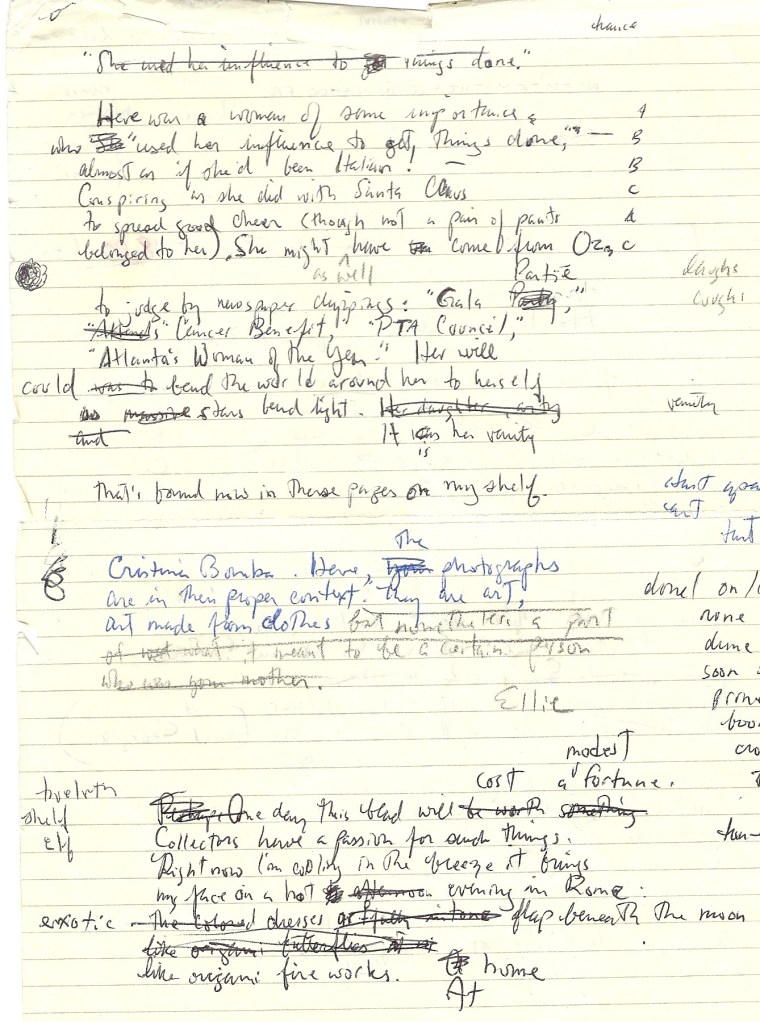 chance
"She used her influence to things done."
Here was a woman of some importance, A
who "used her influence to get things done," — B
almost as if she'd been Italian. B
Conspiring as she did with Santa Claus C
to spread good cheer (though not a pair of pants A
belonged to her). She might have come from Oz, C
as well Partie laughs
to judge by newspaper clippings: "Gala Party," coughs
"Attends" Cancer Benefit," "PTA Council,"
"Atlanta's Woman of the Year." Her will
could was to bend the world around her to herself
as massive stars bend light. Her daughter, vanity
and It was her vanity
is
That's bound now in these pages on my shelf.
start
can't
The
Cristina Bomba. Here, your photographs
are in their proper context. They are art,
art made from clothes but nonetheless a part
of what it meant to be a certain person
who was your mother.
done/ on/
none
dune
soon
Ellie
modest
cost a fortune.
twelfth
shelf Perhaps One day this blad will be worth something
elf Collectors have a passion for such things.
Right now I'm cooling in the breeze it brings
my face on a hot afternoon evening in Rome:
exotic the colored dresses artfully in tone flap beneath the moon
like origami butterflies at
like origami fireworks. home
At